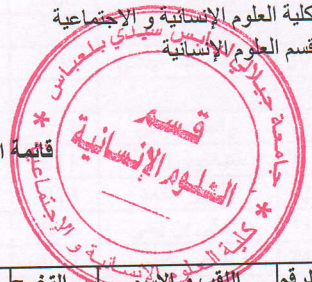 كلية العلوم الإنسانية و الاجتماعية
قسم العلوم الإنسانية
جامعة جيلالي ليابس سيدي بلعباس
قسم
العلوم الإنسانية
كلية العلوم الإنسانية و الإجتماعية
قائمة
اللقب و الاسم